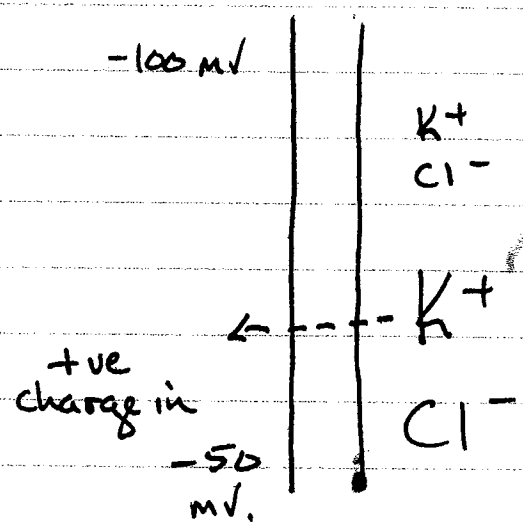 -100 mV
K+
Cl-
K+
+ve
charge in
Cl-
-50
mV.